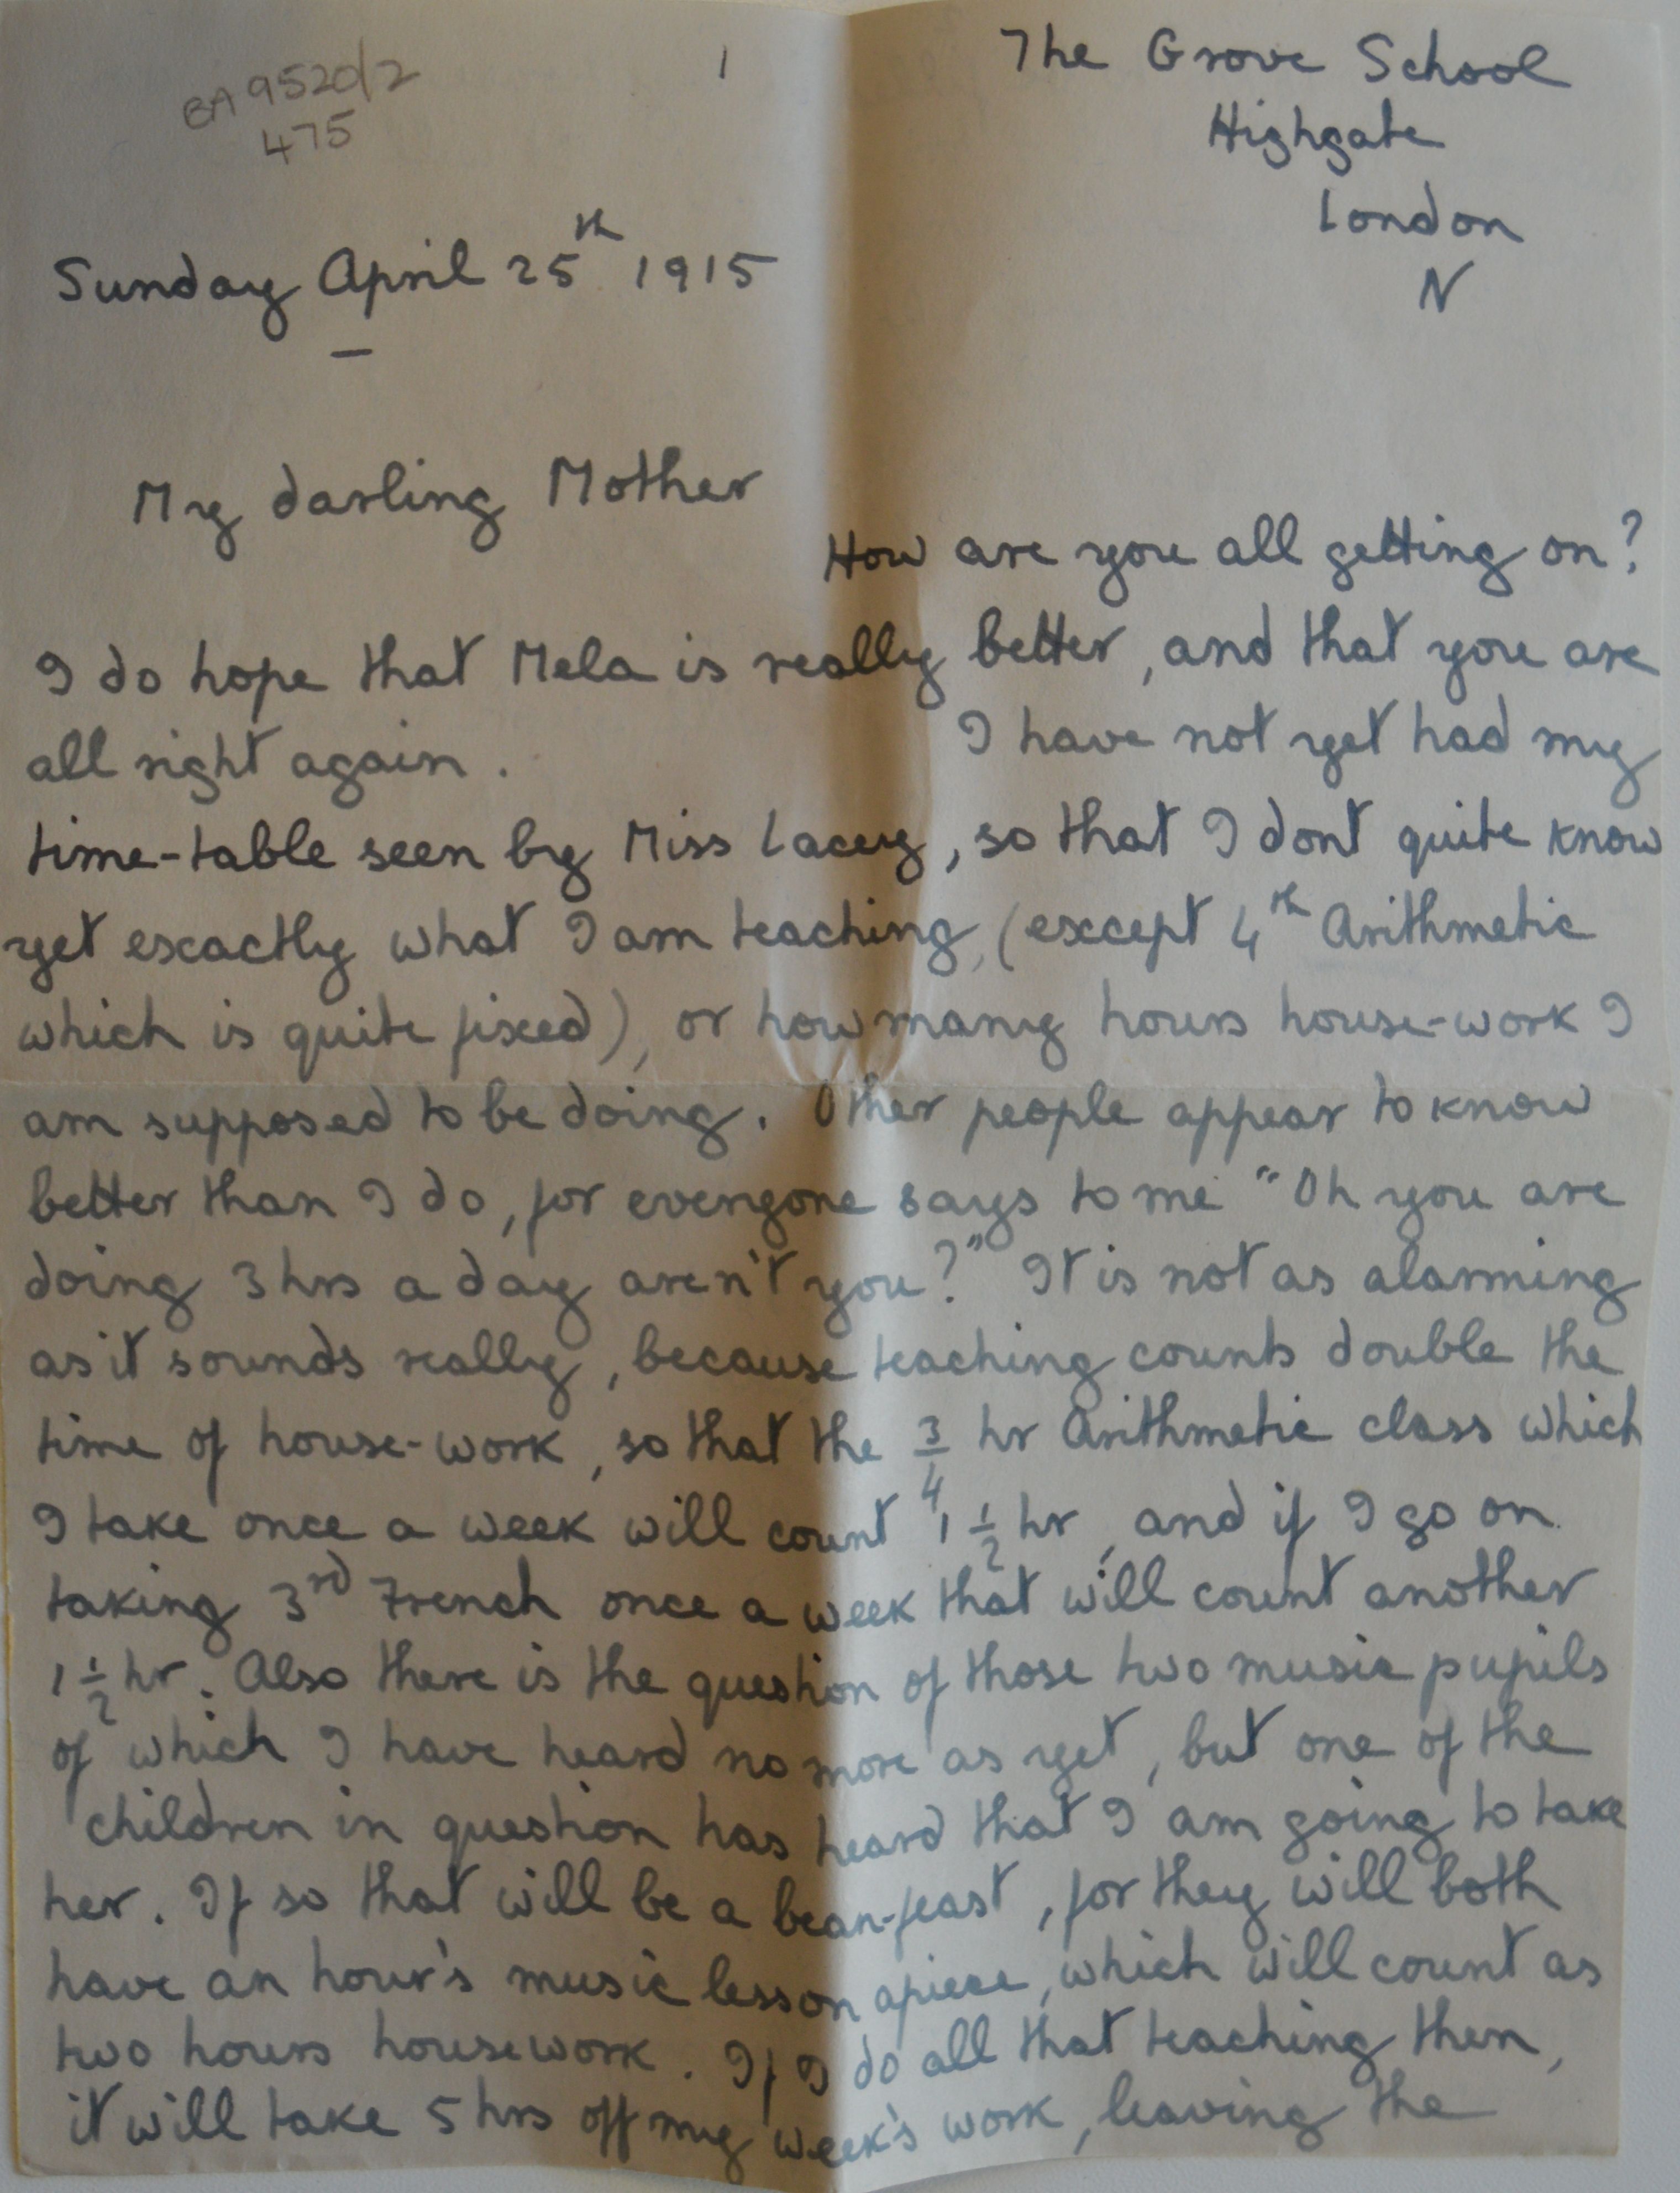 BA 9520/2
475
1
The Grove School
Highgate
London
N
Sunday April 25th 1915
My darling Mother
How are you all getting on?
I do hope that Mela is really better, and that you are
all right again. I have not yet had my
time-table seen by Miss Lacey, so that I dont quite know
yet exactly what I am teaching, (except 4th Arithmetic
which is quite fixed), or how many hours house-work I
am supposed to be doing. Other people appear to know
better than I do, for everyone says to me "Oh you are
doing 3 hrs a day aren't you?" It is not as alarming
as it sounds really, because teaching counts double the
time of house-work, so that the 3/4 hr Arithmetic class which
I take once a week will count 1 1/2 hr, and if I go on
taking 3rd French once a week that will count another
1 1/2 hr. Also there is the question of those two music pupils
of which I have heard no more as yet, but one of the
children in question has heard that I am going to take
her. If so that will be a bean-feast, for they will both
have an hour's music lesson apiece, which will count as
two hours housework. If I do all that teaching then,
it will take 5 hrs off my week's work, leaving the